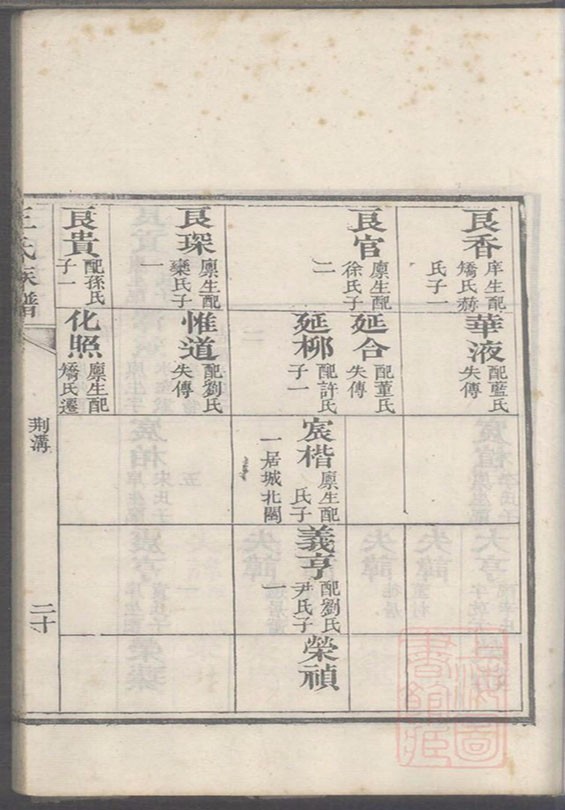 良香 庠生配矯氏赫氏子一
良官 廪生配徐氏子二
良琛 廪生配欒氏子一
良貴 配孫氏子一
華液 配藍氏失傳
延合 配董氏失傳
延柳 配許氏子一
惟道 配劉氏失傳
化照 廪生配矯氏遷
宸楷 廪生配氏子一居城北關
義亨 配劉氏尹氏子一
榮禎
王氏族譜
荆溝
二十